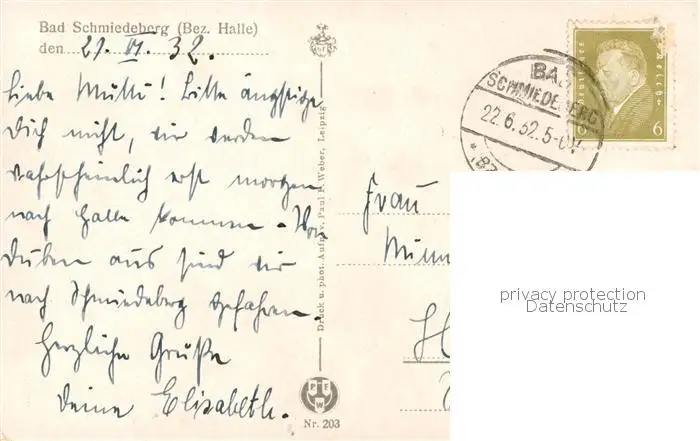 Bad Schmiedeberg (Bez. Halle)
den 21. VI. 32.
Liebe Mutti! Bitte ängstige
Dich nicht, wir werden
wahrscheinlich erst morgen
nach Halle kommen. Von
Düben aus sind wir
nach Schmiedeberg gefahren.
Herzliche Grüße
Deine Elisabeth.
Druck u. phot. Aufn. v. Paul F. Weber, Leipzig
PFW
Nr. 203
BAD
SCHMIEDEBERG
22.6.32.5-6
Deutsches Reich
6 6
Frau
privacy protection
Datenschutz